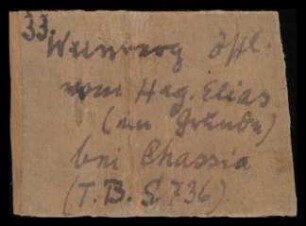 33.
Weinberg östl.
vom Hag. Elias
(im Grunde)
bei Chassia
(T. B. S. 736)